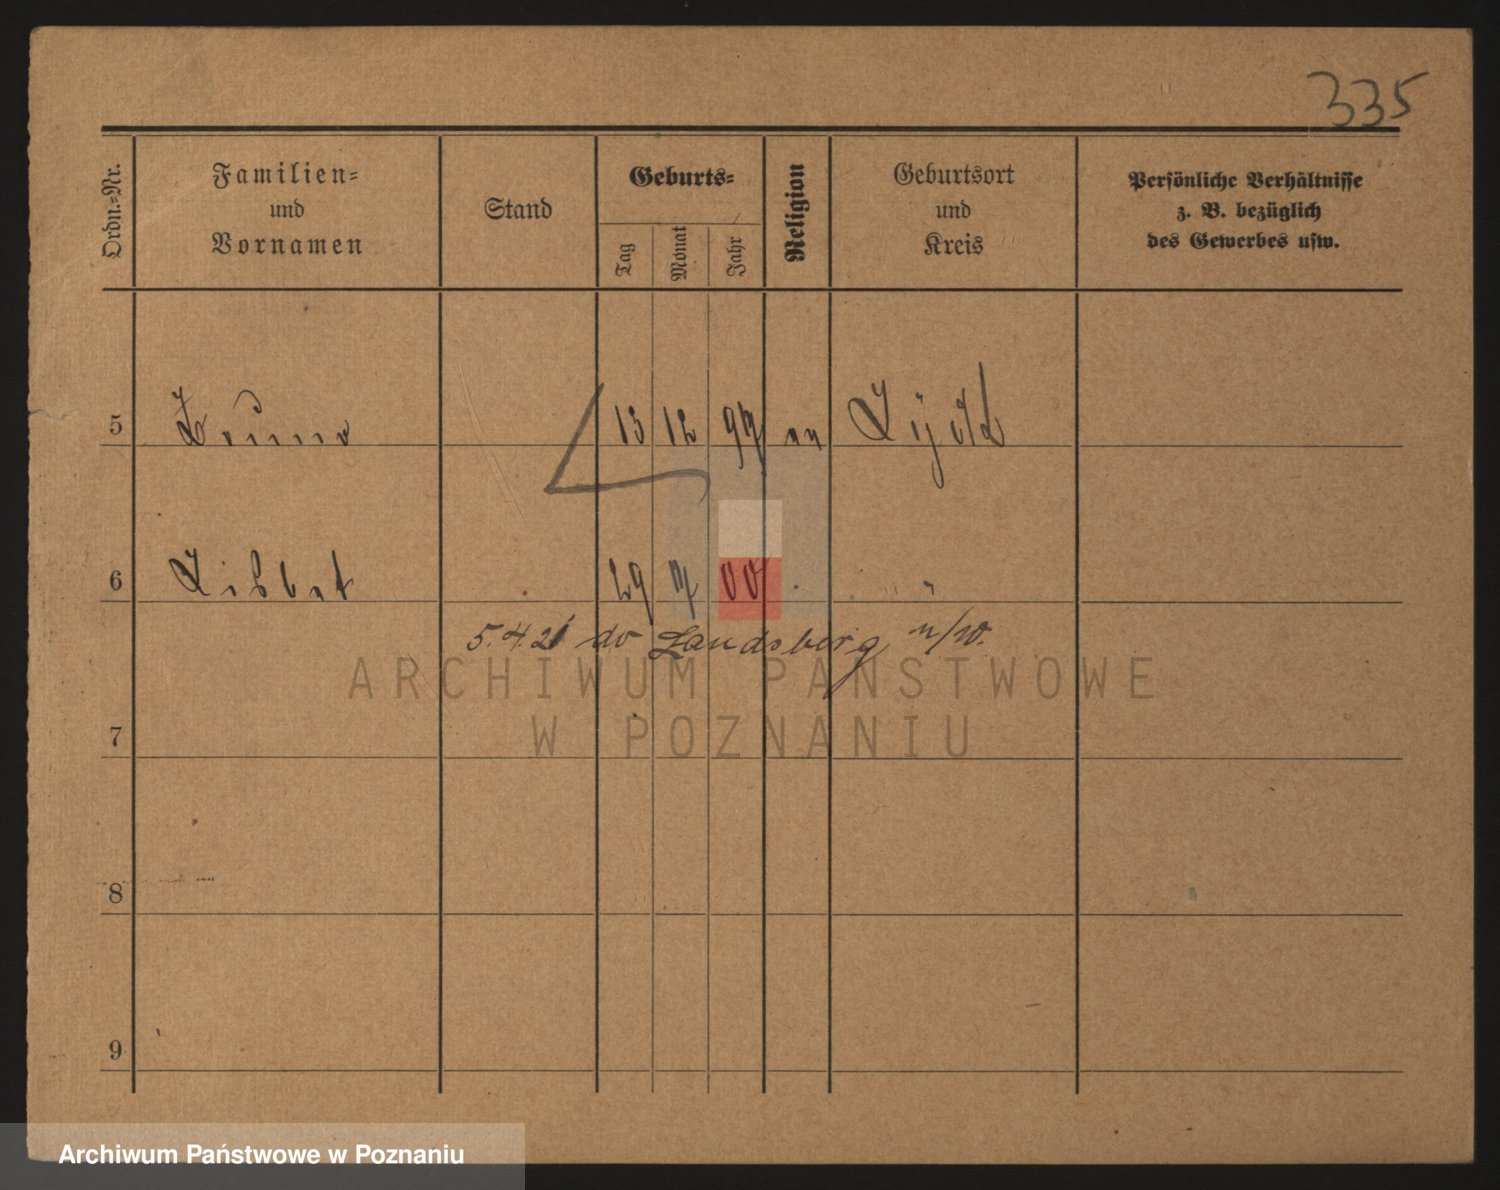 335
Ordn.-Nr.
Familien-
und
Vornamen
Stand
Geburts-
Tag
Monat
Jahr
Religion
Geburtsort
und
Kreis
Persönliche Verhältnisse
z. B. bezüglich
des Gewerbes usw.
5 Bruno 13 12 97
6 Lisbet 29 7 00 "
5. 4. 21 do Landsberg a/W.
ARCHIWUM PAŃSTWOWE
W POZNANIU
7
8
9
Archiwum Państwowe w Poznaniu